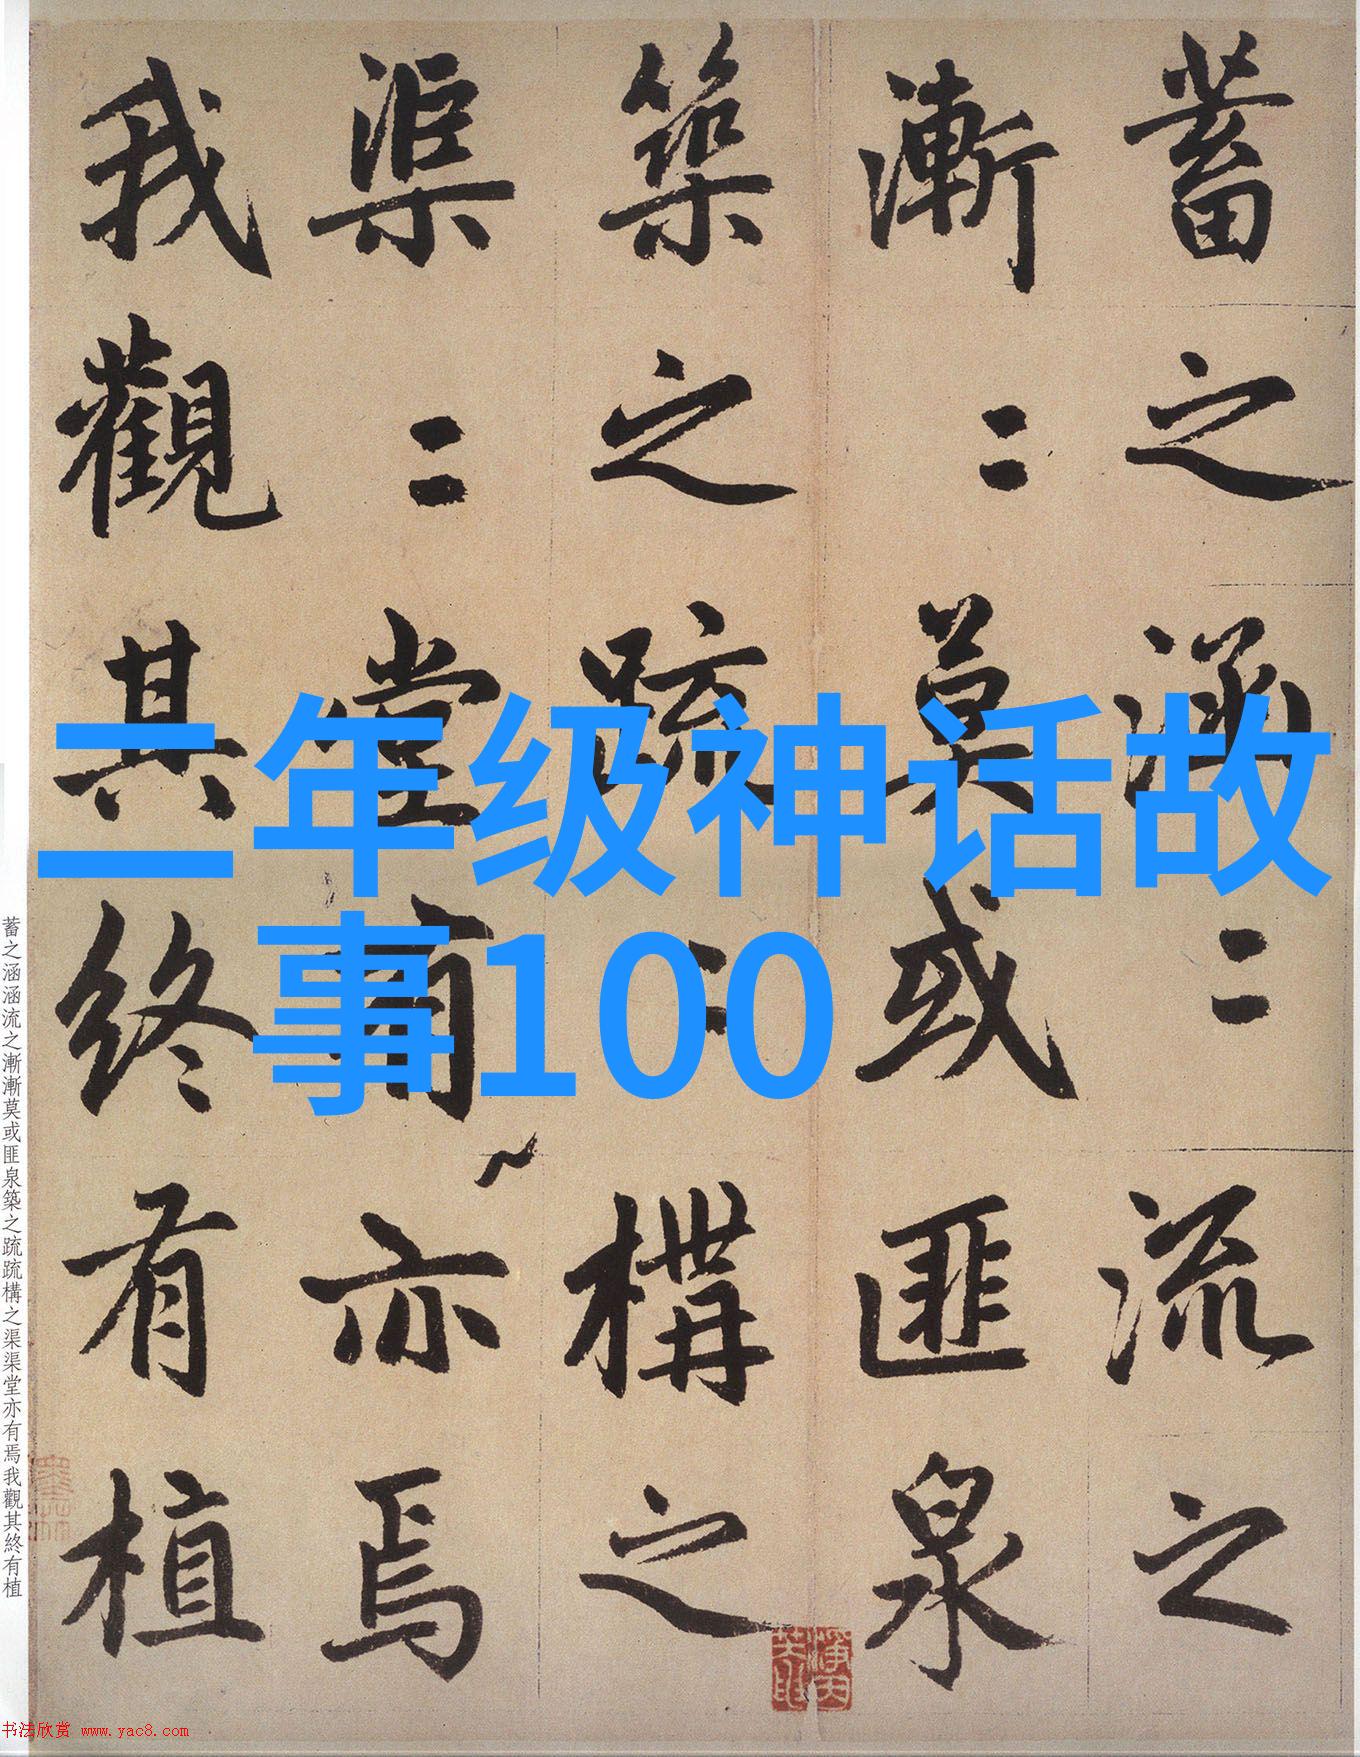 蓄之涵〻流之
漸〻莫或匪泉
築之疏〻構之
渠〻堂有亦焉
我觀其終有植
二年级神话故
事100
蓄之涵涵流之漸漸莫或匪泉築之疏疏構之渠渠堂亦有焉我觀其終有植
书法欣赏 www.yac8.com